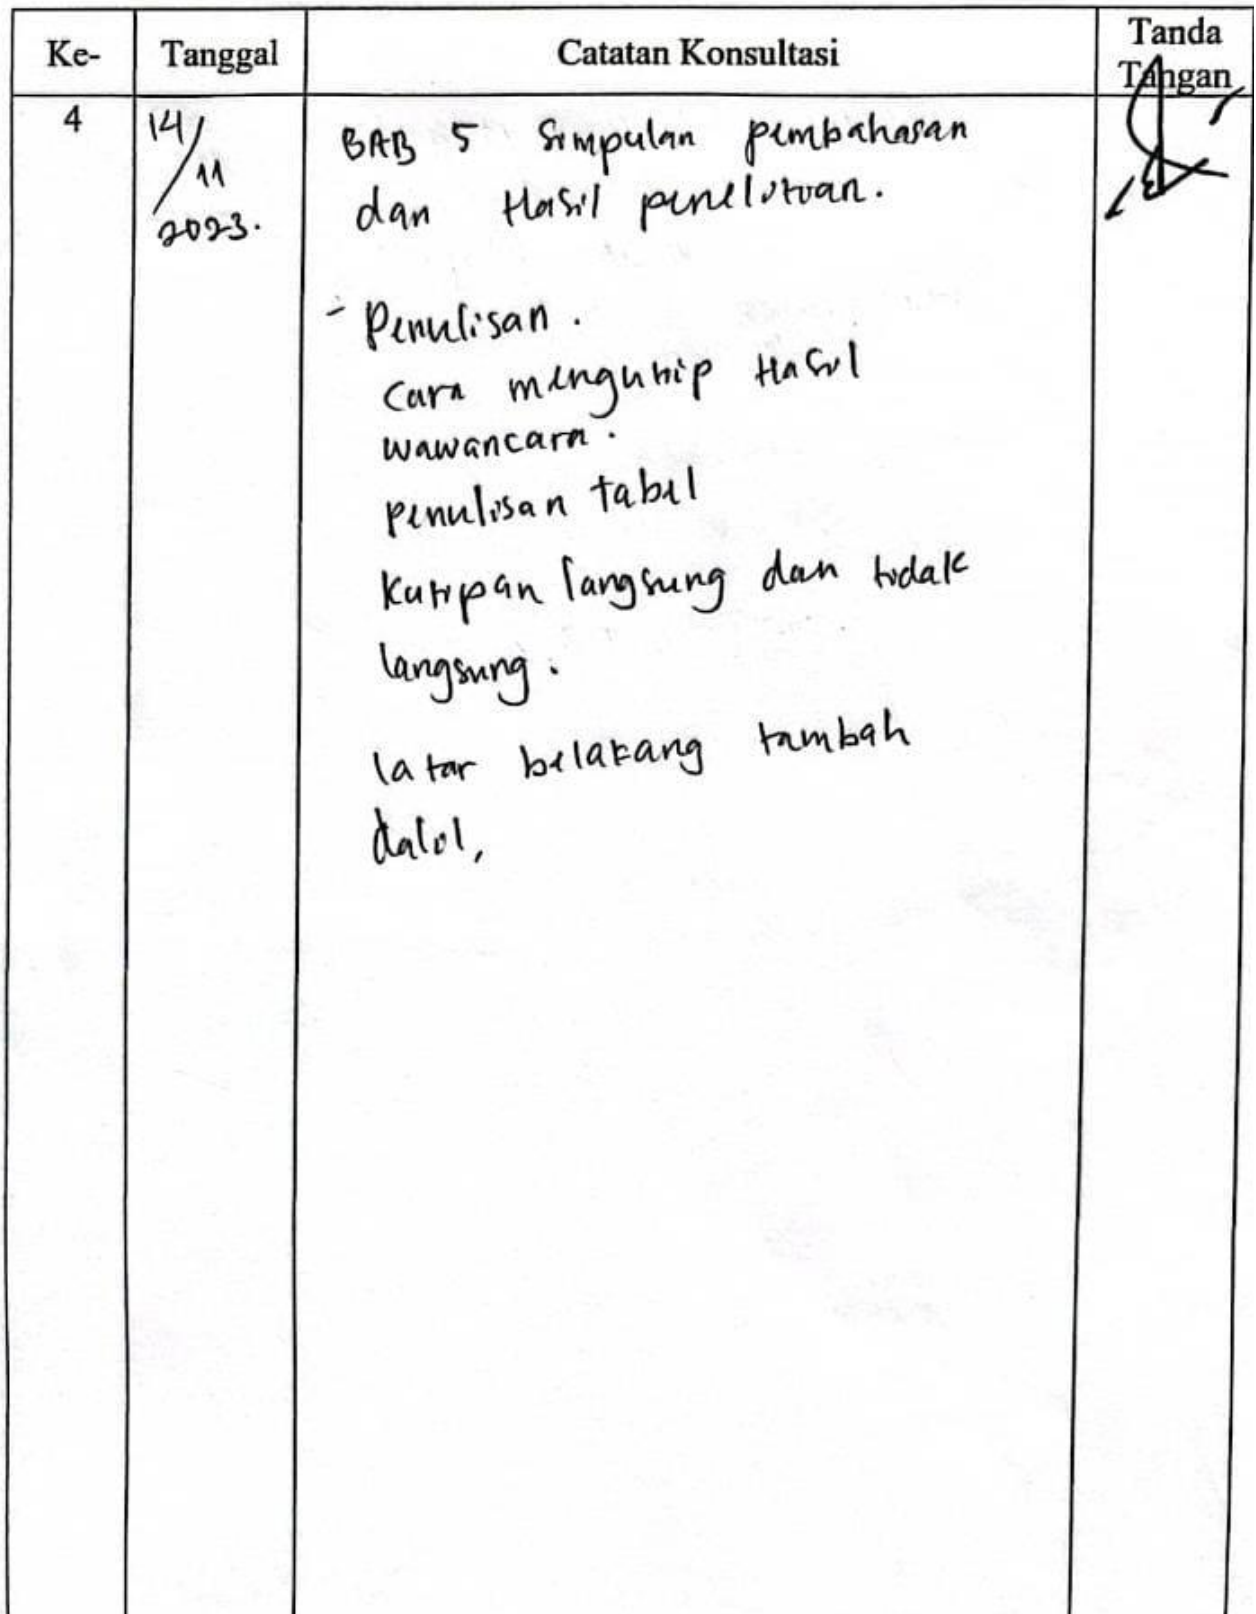 Ke-
Tanggal
Catatan Konsultasi
Tanda
Tangan
4
14/
11
2023.
BAB 5 Simpulan pembahasan
dan Hasil penelitian.
- Penulisan.
Cara mengutip Hasil
wawancara.
penulisan tabel
Kutipan langsung dan tidak
langsung.
latar belakang tambah
dalil,